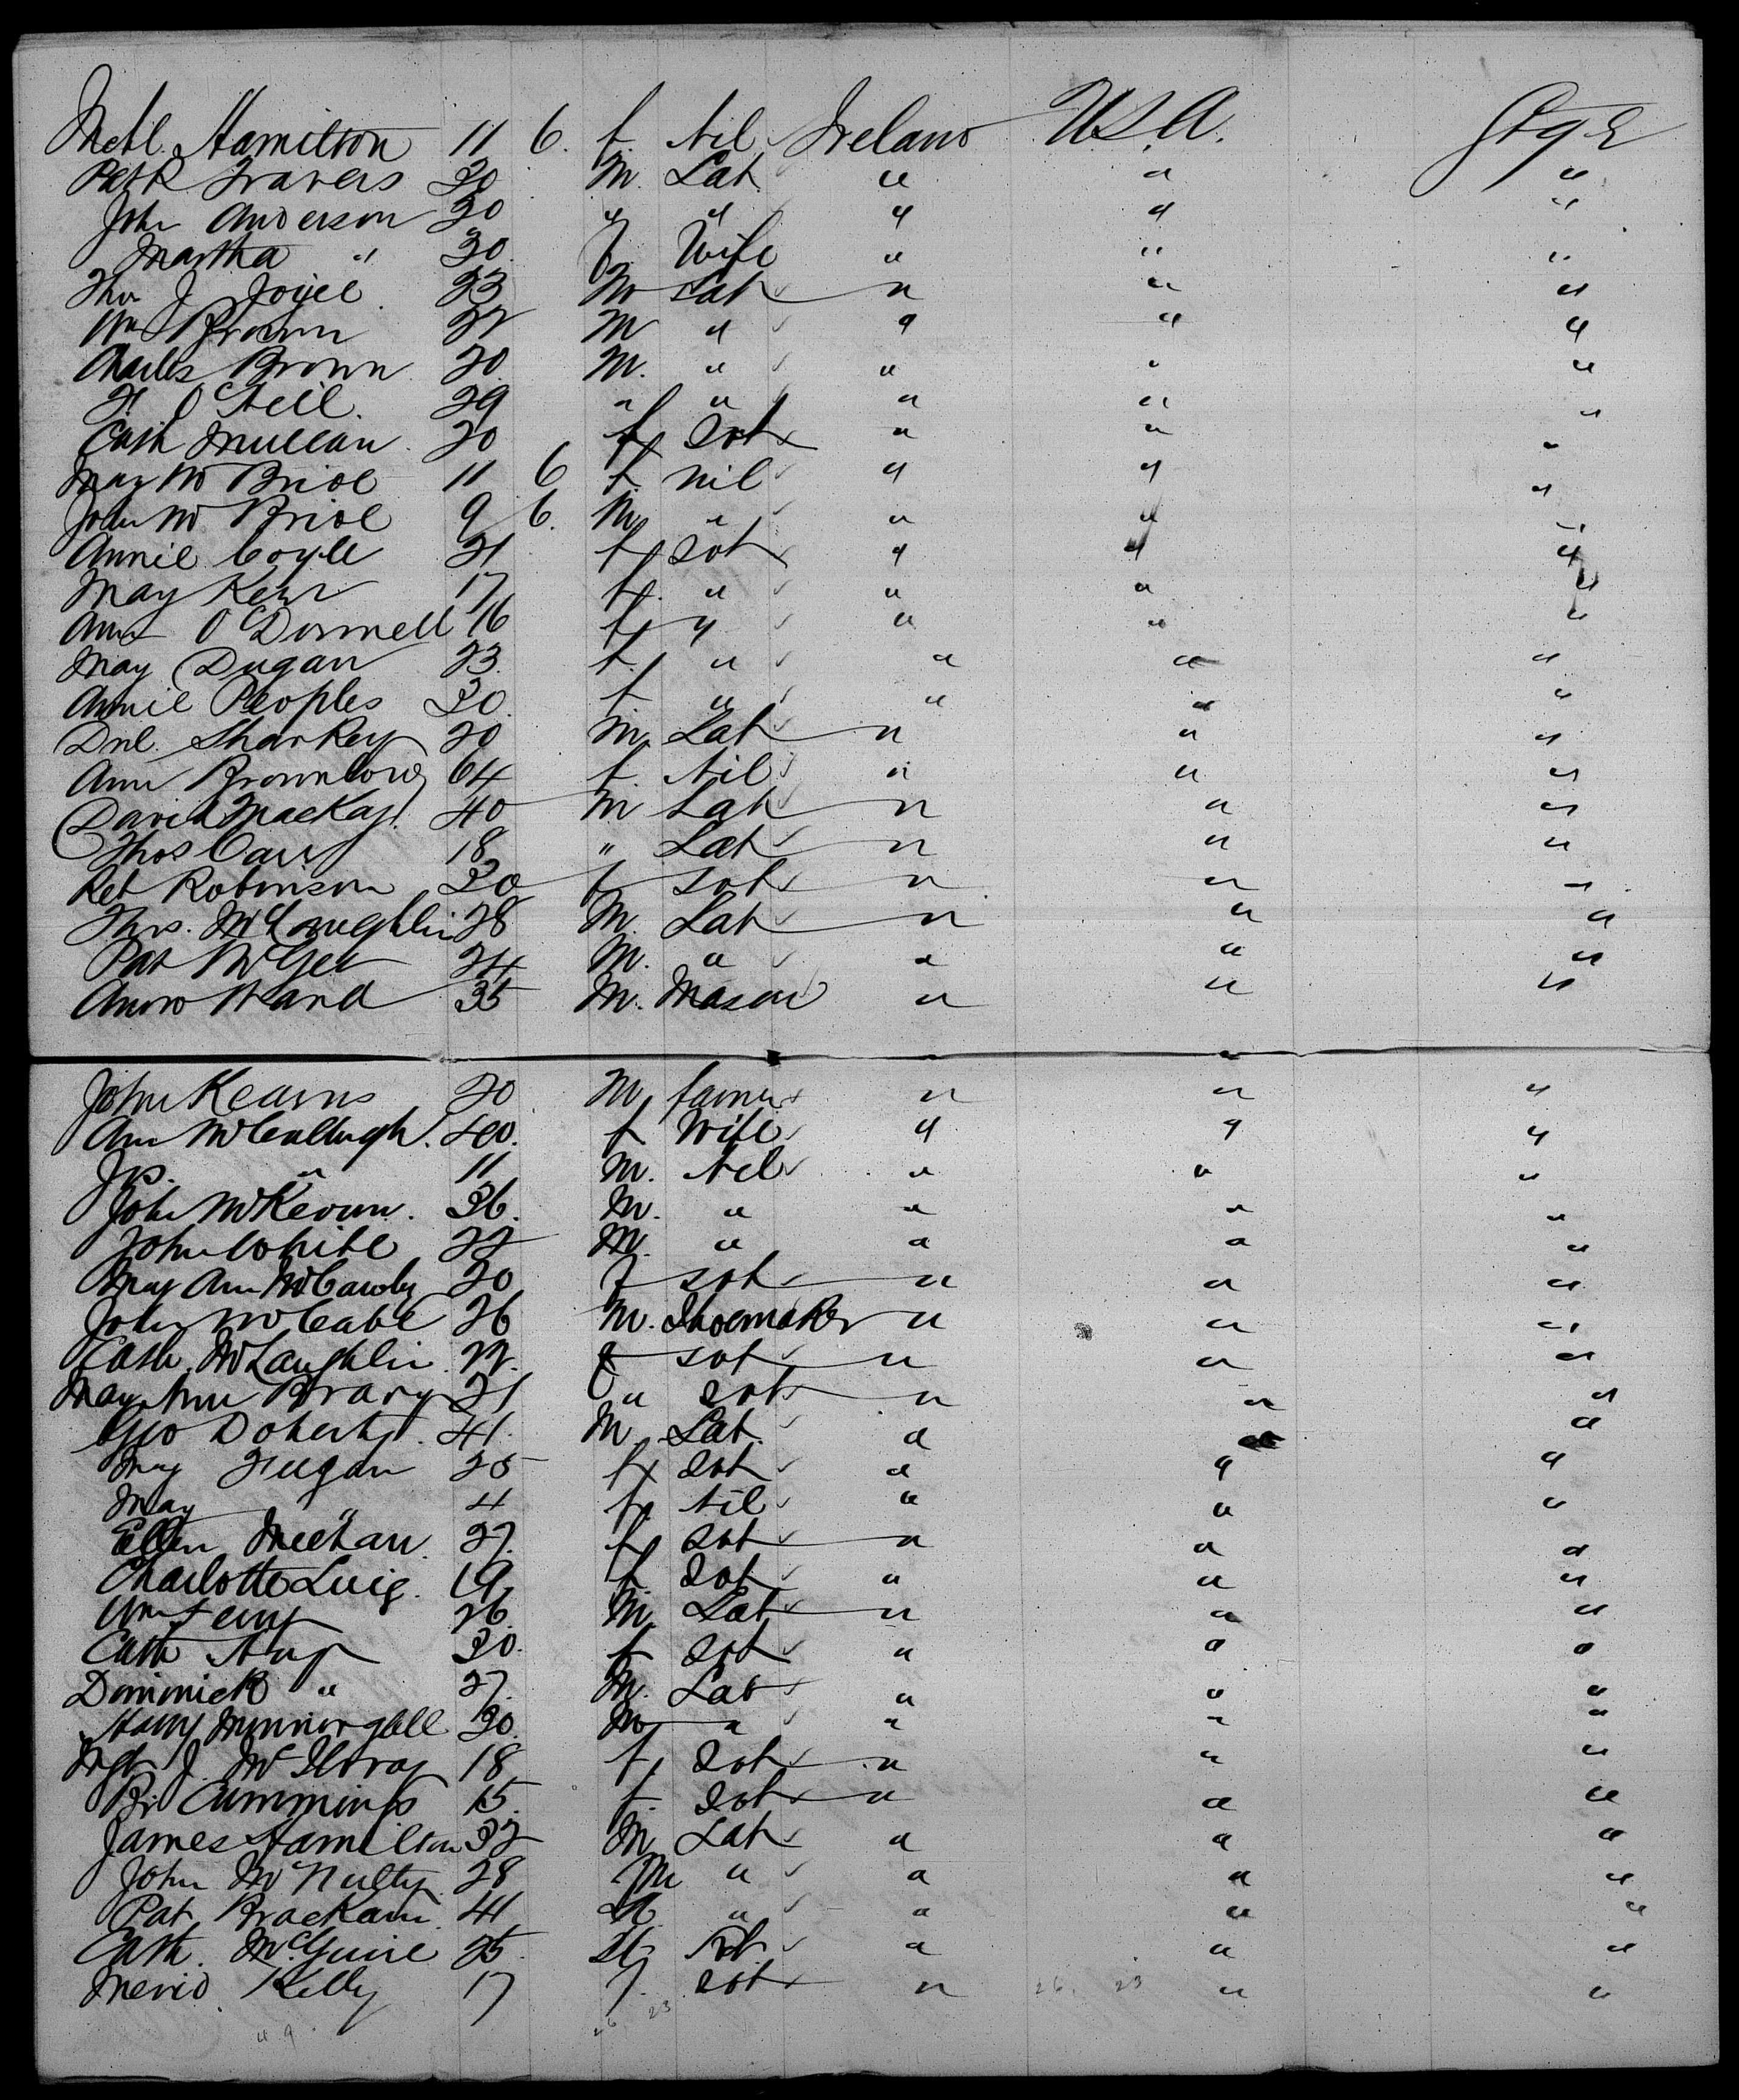 Hamilton 11 6. f. Nil Ireland U.S.A. Stge
Patk Travers 30 M. Lab " " "
John Anderson 30 " " " " "
Martha " 30. f. Wife " " "
J. Joyce 23 M Lab " " "
Wm Brown 22 M " " " "
Charles Brown 20. M. " " " "
O'Neil. 29 " " " " "
Cath Mullan. 20 f Spt " " "
May Mc Bride 11 6 f. nil " " "
John Mc Bride 9 6. M. " " " "
Annie Coyle 21 f Spt " " "
May Kerr 17 f. " " " "
Ann O'Donnell 16 f " " " "
May Dugan 23. f. " " " "
Annie Peoples 30. f " " " "
Dnl. Sharkey 20 M. Lab " " "
Ann Brownlow 64 f. Nil " " "
David Mackay. 40 M Lab " " "
Thos Carr 18 " Lab " " "
Robinson 30 f Spt " " "
Thos. McLaughlin 28 M. Lab " " "
Pat McGee 24 M. " " " "
Andw Ward 35 M. Mason " " "
John Kearns 20 M. farmer " " "
Ann McCullugh. 40. f Wife " " "
Jas. " 11 M. Nil " " "
John McKevun. 36. M. " " " "
John White 22 M. " " " "
May Ann 20 f spt " " "
John McCabe 26 M. Shoemaker " " "
Cath. McLaughlin 22. f spt " " "
May Ann Brady 21 " spt " " "
Geo Doherty. 41. M. Lab. " " "
May 25 f spt " " "
May " 4 f. Nil " " "
Ellen Meehan. 27. f spt " " "
Charlotte 19, f. Spt " " "
Wm 26. M. Lab " " "
Cath 30. f spt " " "
Dominick " 27. M. Lab " " "
30. M " " " "
J. 18 f. Spt " " "
Cummings 15. f. Spt " " "
James Hamilton 32 M Lab " " "
John McNulty 28 M " " " "
Pat. 41 " " " "
Cath. McGuire 25. " " "
Kelly 17 f. spt " " "
26. 23